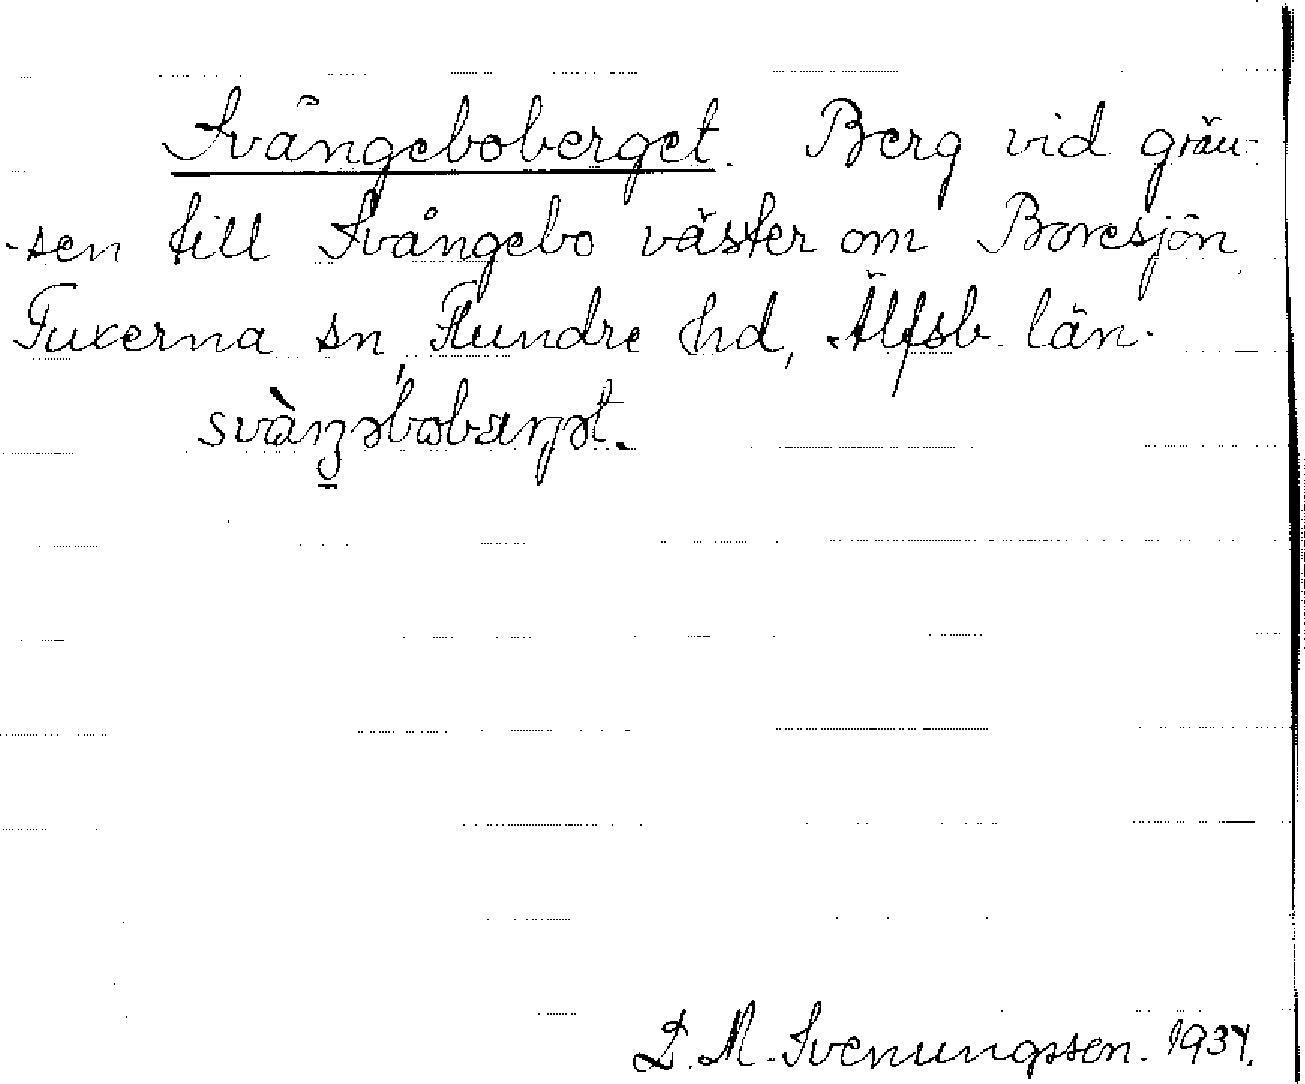 Svångeboberget. Berg vid grän-
-sen till Svångebo väster om Boresjön,
Fuxerna sn, Flundre hd, Älfsb. län.
D. M. Svenungsson. 1934.